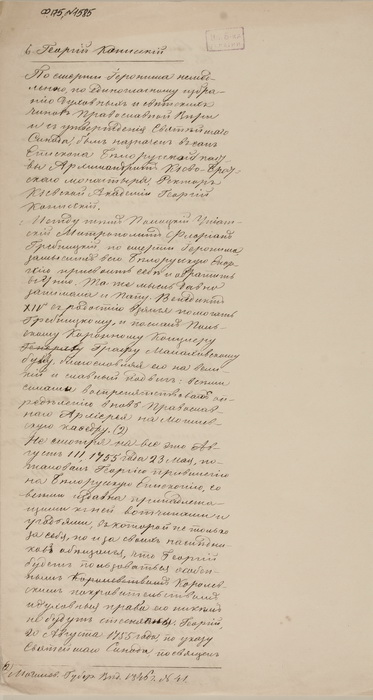 ФД5 №1585
6. Георгій Конисскій
По смерти Іеронима немед-
ленно, по единогласному избра-
нію духовныхъ и свѣтскихъ
чиновъ Православной Вѣры
и съ утвержденія Святѣйшаго
Синода, былъ назначенъ въ санъ
Епископа Бѣлорусскаго
Архимандритъ Кіево-Брат-
скаго монастыря, Ректоръ
Кіевской Академіи Георгій
Конисскій.
Между тѣмъ Полоцкій Уніат-
скій Митрополитъ Флоріанъ
Гребницкій, по смерти Іеронима
замыслилъ всю Бѣлорусскую Епар-
хію присвоить себѣ и обратить
въ Унію. Та же мысль давно
занимала и Папу. Бенедиктъ
XIV съ радостію взялся помогать
Гребницкому, и послалъ Поль-
скому Коронному Канцлеру
Графу Малаховскому
буллу, благословляя его на вели-
кій и славный подвигъ: всѣми
силами воспрепятствовать оп-
редѣленію вновь Православ-
наго Архіерея на Могилев-
скую каѳедру. (2)
Но смотря на все это Ав-
густъ III, 1755 года 23 Мая, по-
жаловалъ Георгію привилегію
на Бѣлорусскую Епископію, со
всѣми издавна принадлежа-
щими къ ней вотчинами и
угодьями, въ которой не только
за себя, но и за своихъ наслѣдни-
ковъ обѣщался, что Георгій
будетъ пользоваться особен-
нымъ Королев-
скимъ покровительствомъ
и духовныя права его никѣмъ
не будутъ стѣсняемы. Георгій
20 Августа 1755 года, по указу
Святѣйшаго Синода посвященъ
2) Могилев. Губерн. Вѣд. 1846 г. № 41.